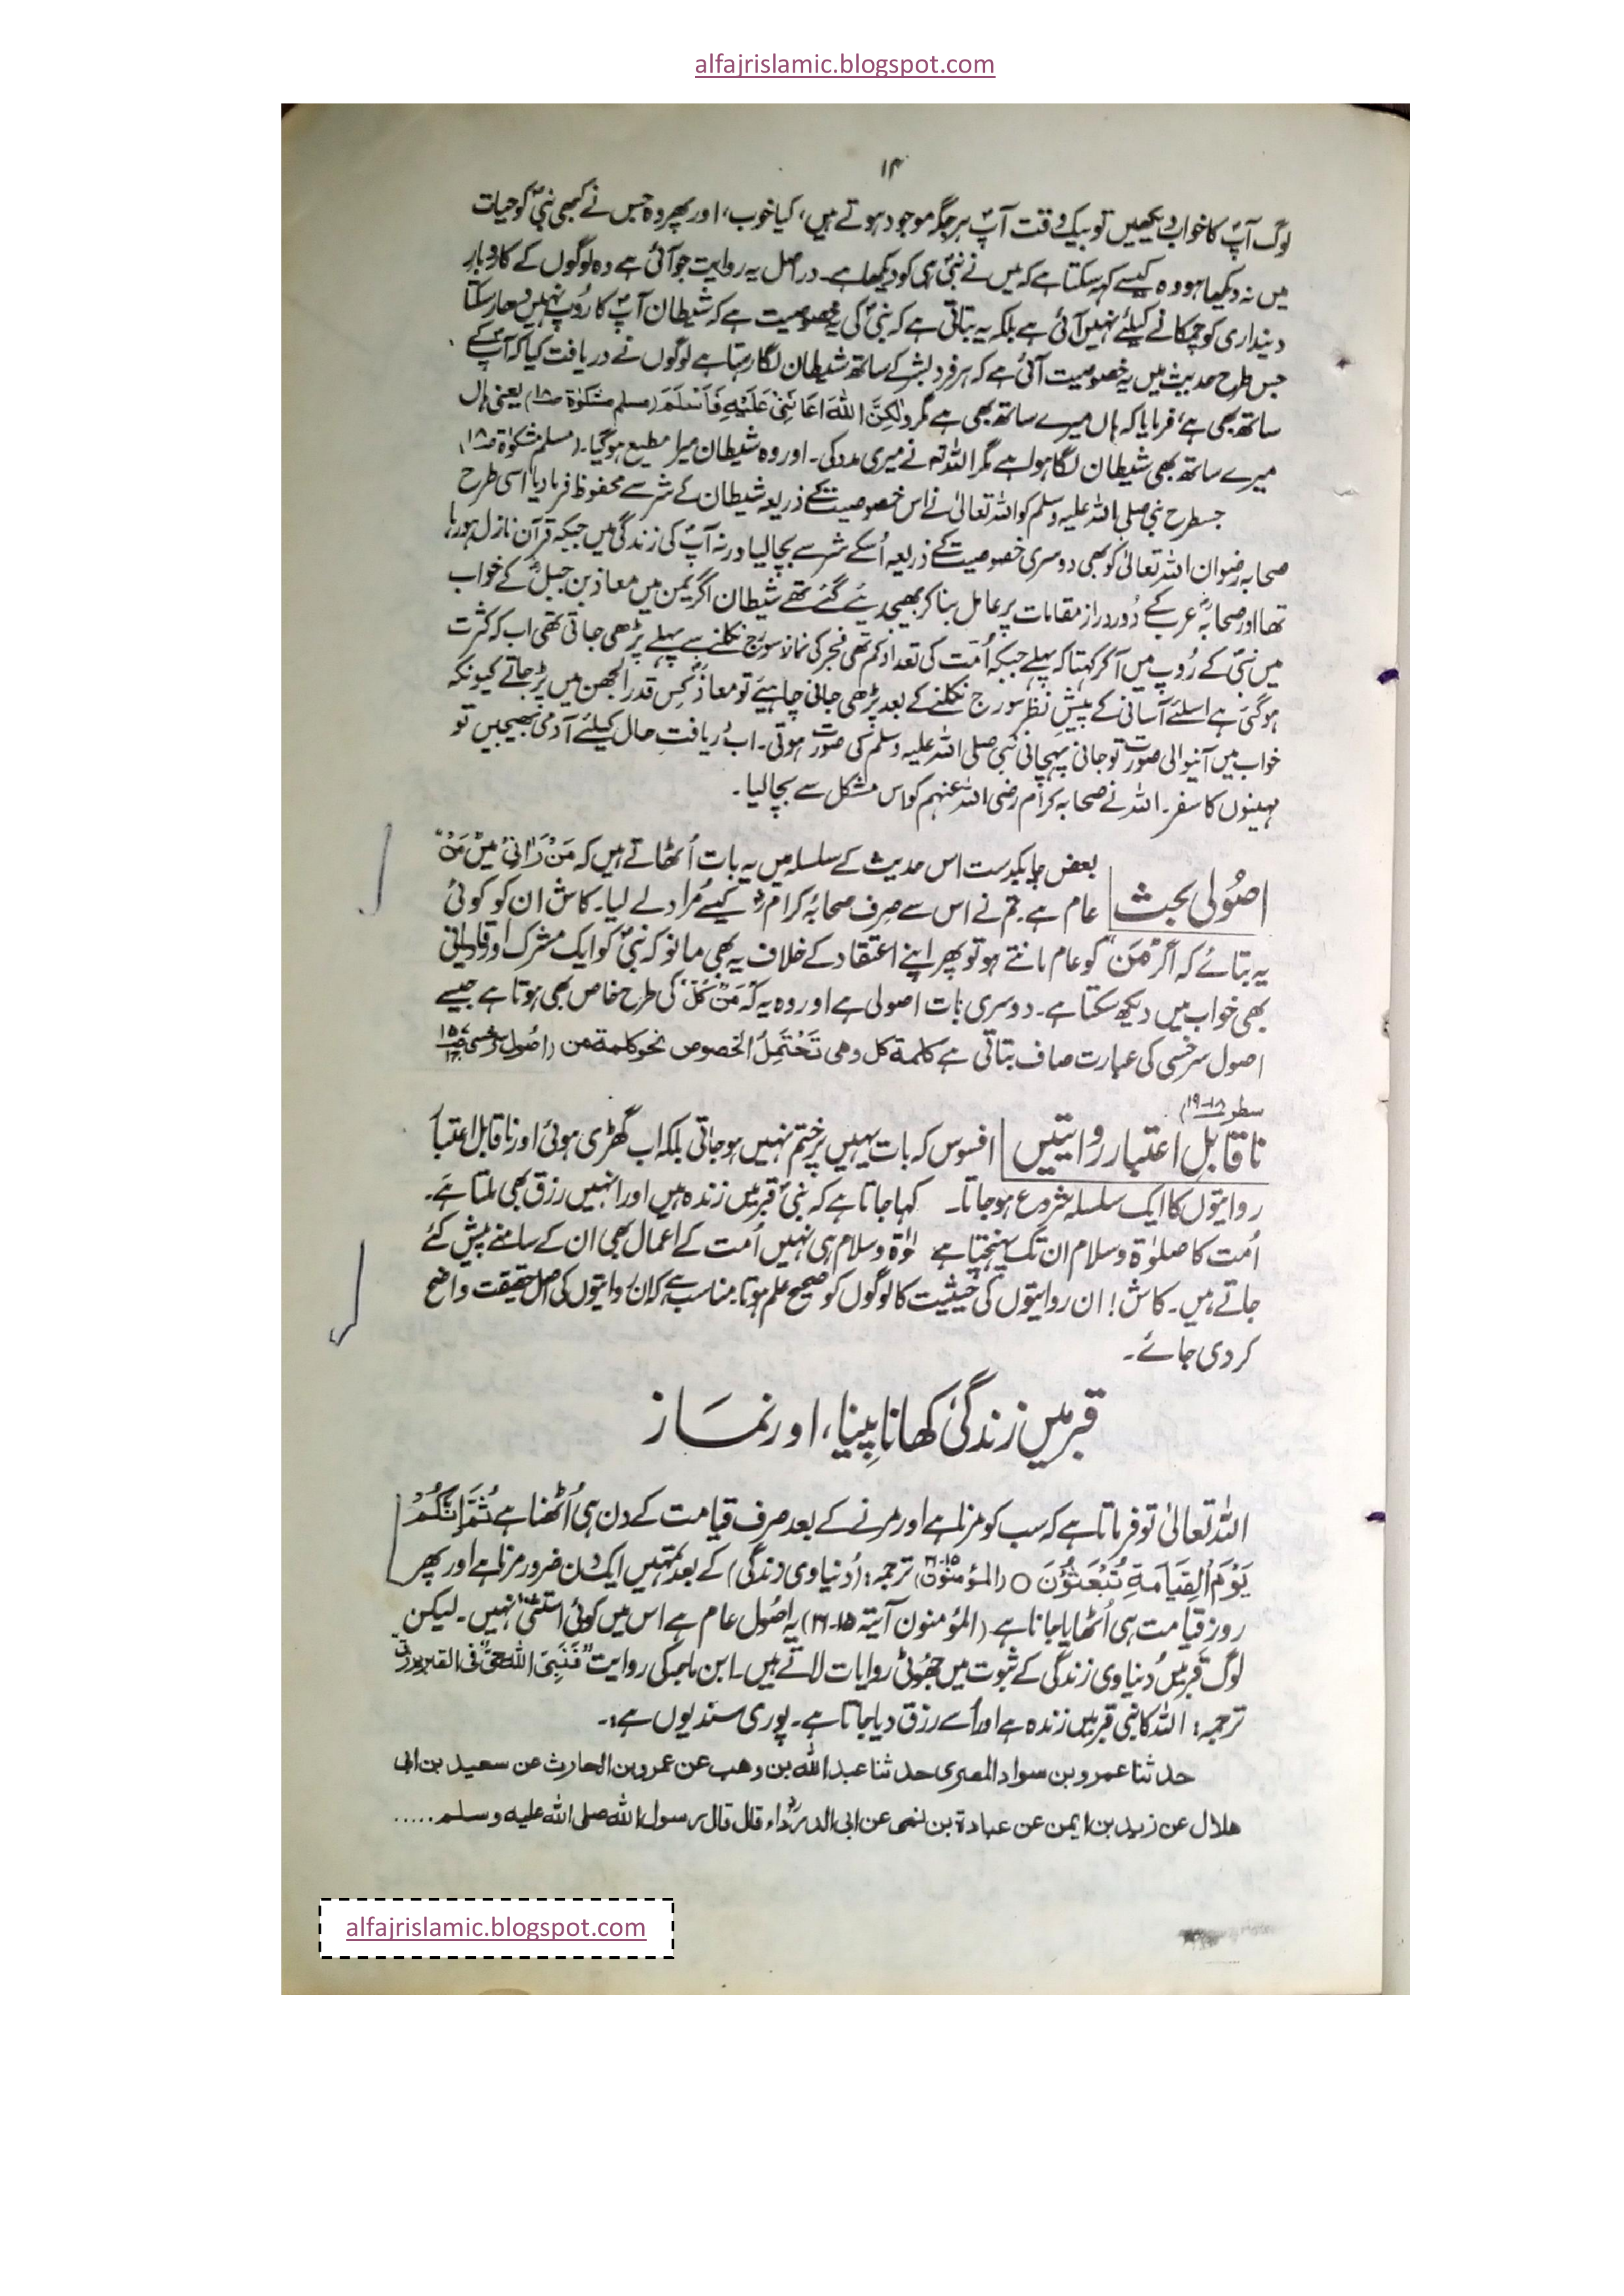 alfajrislamic.blogspot.com
۱۴
لوگ آپؐ کا خواب دیکھیں تو بیک وقت آپؐ ہر جگہ موجود ہوتے ہیں، کیا خوب، اور پھر وہ جس نے کبھی نبیؐ کو حیات
میں نہ دیکھا ہو وہ کیسے کہہ سکتا ہے کہ میں نے نبیؐ ہی کو دیکھا ہے۔ دراصل یہ روایت جو آئی ہے وہ لوگوں کے کاروبارِ
دینداری کو چمکانے کیلئے نہیں آئی ہے بلکہ یہ بتاتی ہے کہ نبیؐ کی یہ خصوصیت ہے کہ شیطان آپؐ کا رُوپ نہیں دھار سکتا
جس طرح حدیث میں یہ خصوصیت آئی ہے کہ ہر فرد بشر کے ساتھ شیطان لگا رہتا ہے لوگوں نے دریافت کیا کہ آپؐ کے
ساتھ بھی ہے، فرمایا کہ ہاں میرے ساتھ بھی ہے مگر وَلٰكِنَّ اللهَ اَعَانَنِیْ عَلَيْهِ فَاَسْلَمَ (مسلم مشکوٰة ص۱۸) یعنی ہاں
میرے ساتھ بھی شیطان لگا ہوا ہے مگر اللہ تعالیٰ نے میری مدد کی۔ اور وہ شیطان میرا مطیع ہو گیا۔ (مسلم مشکوٰة ص۱۸)
جسطرح نبی صلی اللہ علیہ وسلم کو اللہ تعالیٰ نے اس خصوصیت کے ذریعہ شیطان کے شر سے محفوظ فرمادیا اسی طرح
صحابہ رضوان اللہ تعالیٰ کو بھی دوسری خصوصیت کے ذریعہ اُسکے شر سے بچا لیا ورنہ آپؐ کی زندگی میں جبکہ قرآن نازل ہو رہا
تھا اور صحابہؓ عرب کے دُور دراز مقامات پر عامل بنا کر بھیج دیئے گئے تھے شیطان اگر یمن میں معاذ بن جبلؓ کے خواب
میں نبیؐ کے رُوپ میں آ کر کہتا کہ پہلے جبکہ اُمت کی تعداد کم تھی فجر کی نماز سورج نکلنے سے پہلے پڑھی جاتی تھی اب کہ کثرت
ہو گئی ہے اسلئے آسانی کے پیشِ نظر سورج نکلنے کے بعد پڑھی جانی چاہیئے تو معاذؓ کس قدر الجھن میں پڑ جاتے کیونکہ
خواب میں آنیوالی صورت تو جانی پہچانی نبی صلی اللہ علیہ وسلم کی صورت ہوتی۔ اب دریافتِ حال کیلئے آدمی بھیجیں تو
مہینوں کا سفر۔ اللہ نے صحابہ کرام رضی اللہ عنہم کو اس مشکل سے بچا لیا۔
اصُولی بحث بعض چابکدست اس حدیث کے سلسلہ میں یہ بات اُٹھاتے ہیں کہ مَنْ رَاٰنِیْ میں مَنْ
عام ہے۔ تم نے اس سے صِرف صحابہ کرامؓ کیسے مُراد لے لیا۔ کاش ان کو کوئی
یہ بتائے کہ اگر مَنْ کو عام مانتے ہو تو پھر اپنے اعتقاد کے خلاف یہ بھی مانو کہ نبیؐ کو ایک مشرک اور قادیانی
بھی خواب میں دیکھ سکتا ہے۔ دوسری بات اصولی ہے اور وہ یہ کہ مَنْ کُلّ کی طرح خاص بھی ہوتا ہے جیسے
اصول سرخسی کی عبارت صاف بتاتی ہے کلمة کل وھی تَحْتَمِلُ الخصوص نحو کلمة من (اصُول سرخسی
سطر ۱۸-۱۹)
ناقابلِ اعتبار روایتیں افسوس کہ بات یہیں پر ختم نہیں ہو جاتی بلکہ اب گھڑی ہوئی اور ناقابلِ اعتبار
روایتوں کا ایک سلسلہ شروع ہو جاتا۔ کہا جاتا ہے کہ نبیؐ قبر میں زندہ ہیں اور انہیں رزق بھی ملتا ہے۔
اُمت کا صلوٰة وسلام ان تک پہنچتا ہے وسلام ہی نہیں اُمت کے اعمال بھی ان کے سامنے پیش کئے
جاتے ہیں۔ کاش! ان روایتوں کی حیثیت کا لوگوں کو صحیح علم ہوتا۔ مناسب ہے کہ ان روایتوں کی اصل حقیقت واضح
کر دی جائے۔
قبر میں زندگی کھانا پینا، اور نماز
اللہ تعالیٰ تو فرماتا ہے کہ سب کو مرنا ہے اور مرنے کے بعد صرف قیامت کے دن ہی اُٹھنا ہے ثُمَّ اِنَّكُمْ
يَوْمَ الْقِيَامَةِ تُبْعَثُوْنَ ○ (المؤمنون ۱۵-۱۶) ترجمہ: (دُنیاوی زندگی) کے بعد تمہیں ایک دن ضرور مرنا ہے اور پھر
روزِ قیامت ہی اُٹھایا جانا ہے (المؤمنون آیتہ ۱۵-۱۶) یہ اصُول عام ہے اس میں کوئی استثنیٰ نہیں۔ لیکن
لوگ قبر میں دُنیاوی زندگی کے ثبوت میں جھُوٹی روایات لاتے ہیں۔ ابن ماجہ کی روایت فَنَبِیُّ اللهِ حَیٌّ فی القبر یرزق
ترجمہ: اللہ کا نبی قبر میں زندہ ہے اور اُسے رزق دیا جاتا ہے۔ پوری سند یوں ہے:۔
حدثنا عمرو بن سواد المصری حدثنا عبد الله بن وهب عن عمرو بن الحارث عن سعید بن ابی
هلال عن زید بن ایمن عن عبادة بن نسی عن ابی الدرداء قال قال رسول الله صلی الله علیه وسلم .....
alfajrislamic.blogspot.com